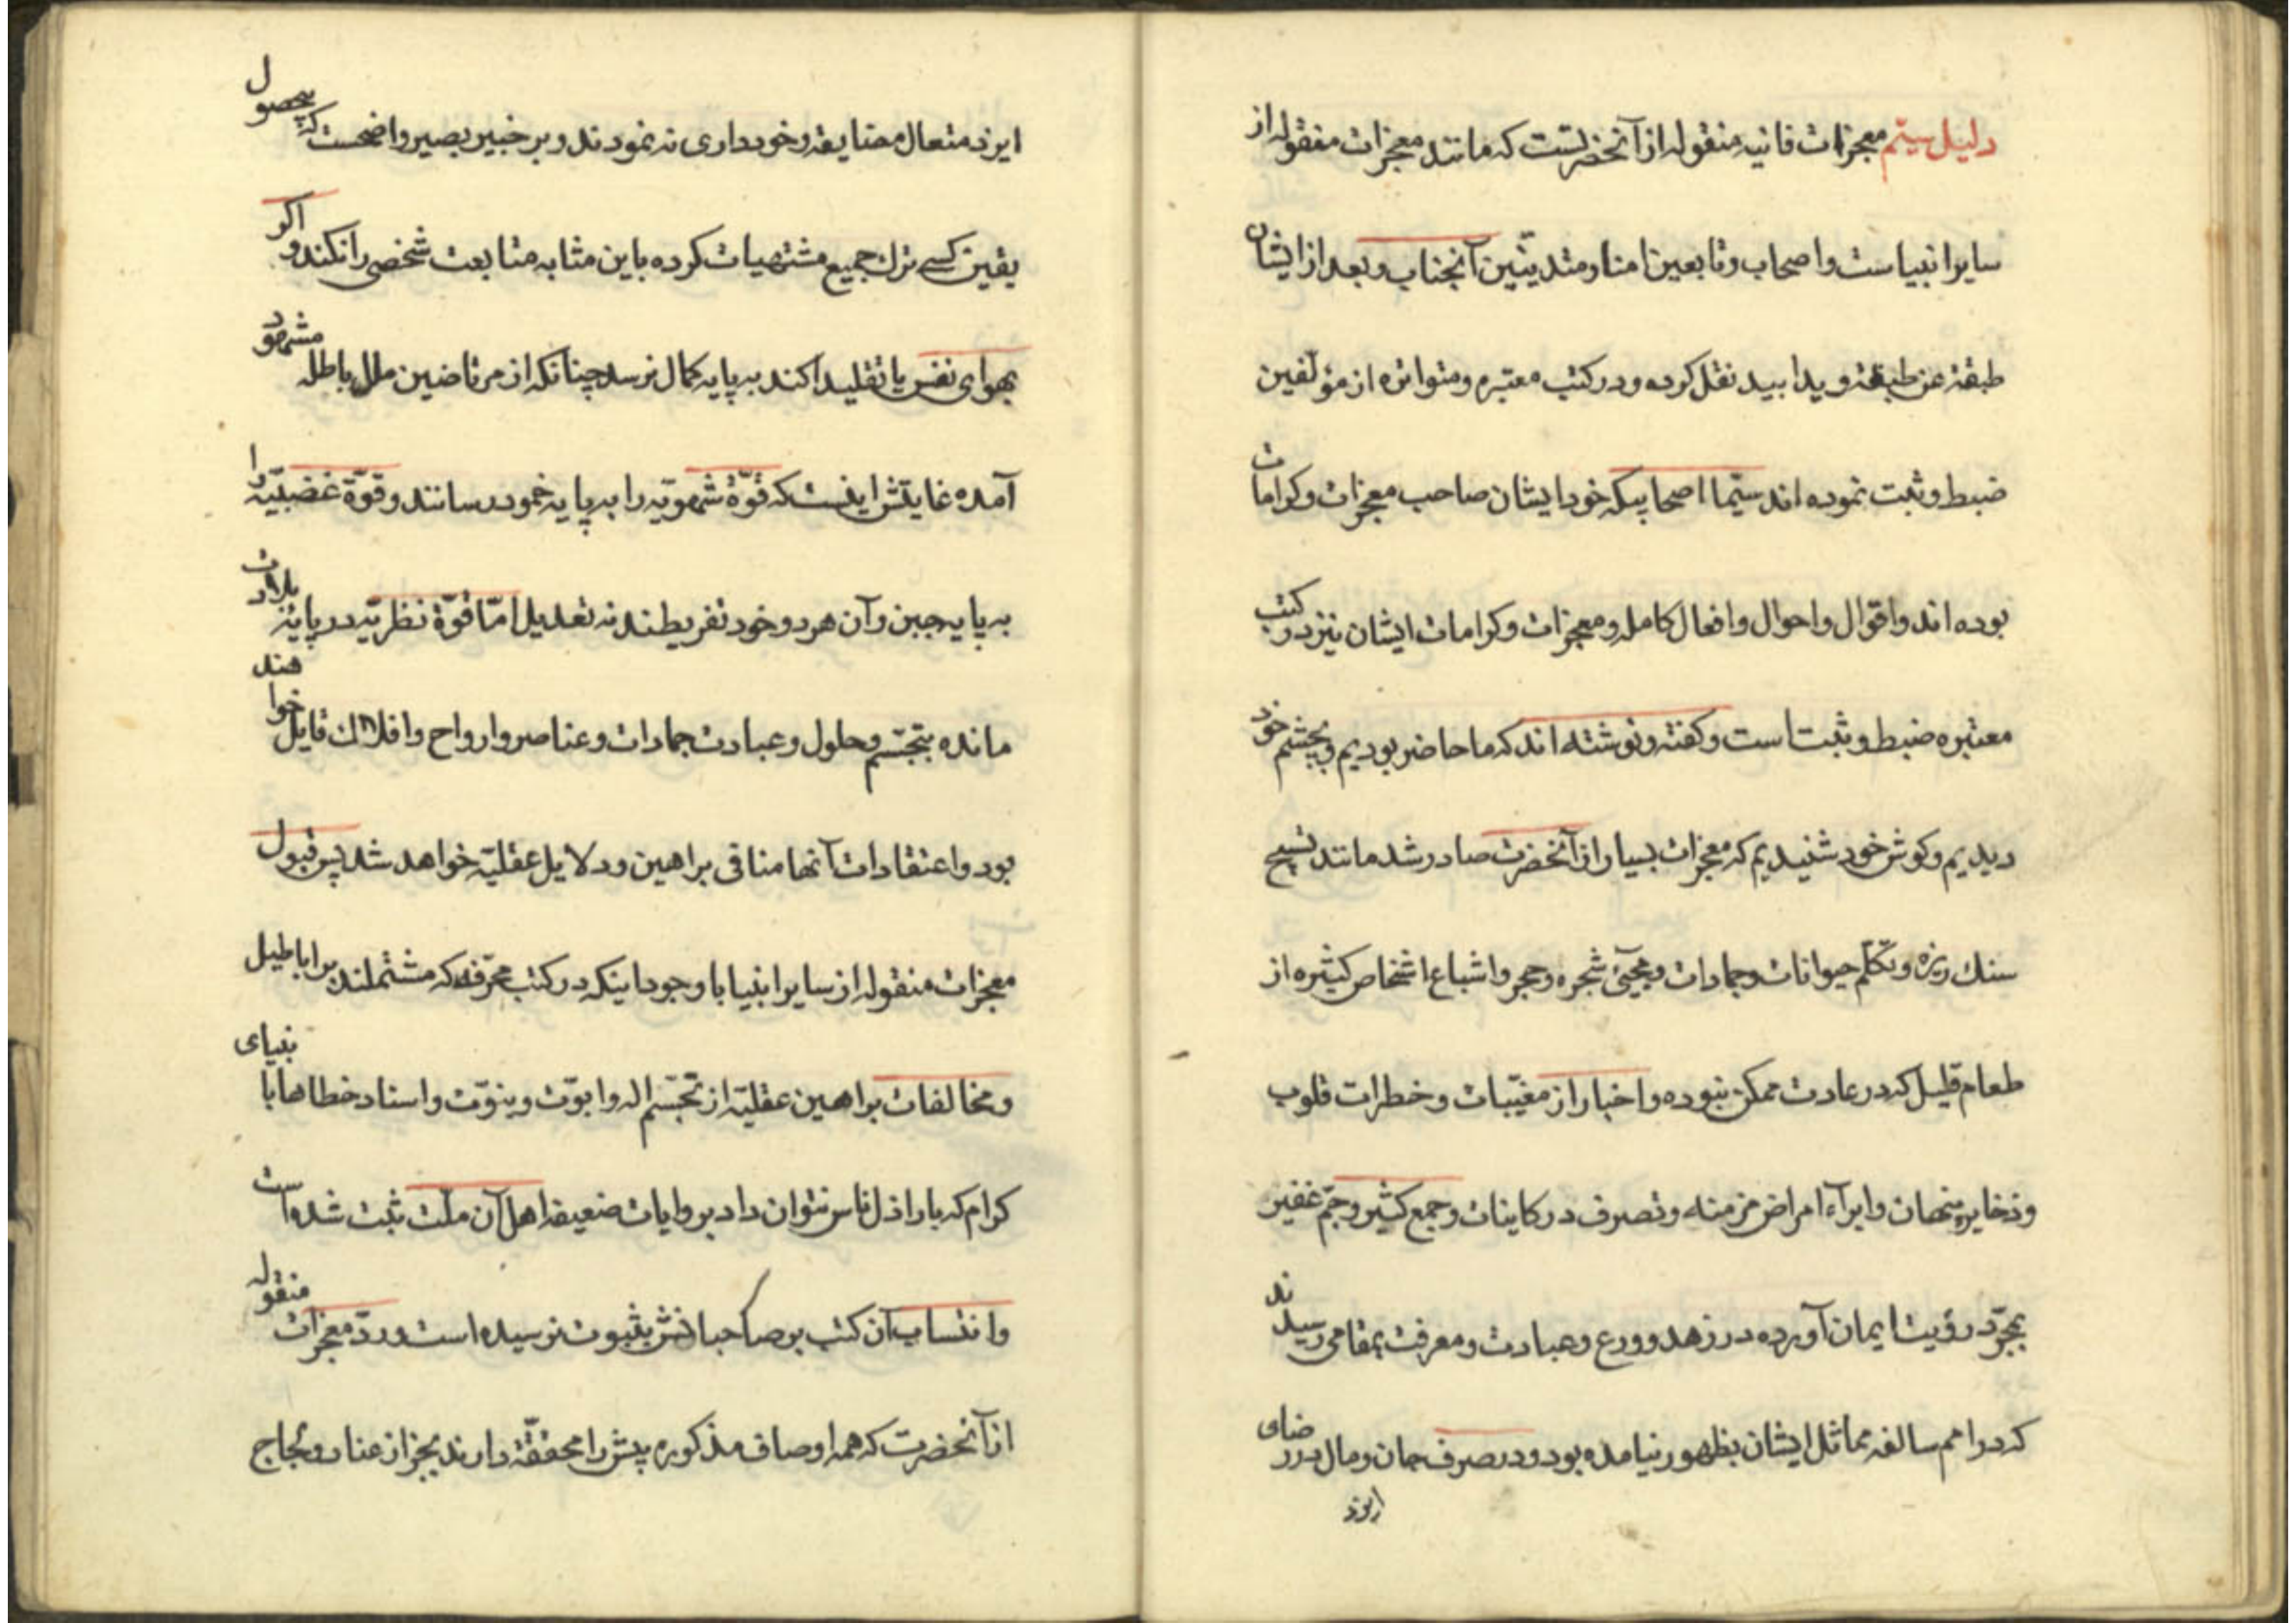 دلیل سیّم معجزات فانیه منقوله از آنحضرتست که مانند معجزات منقوله از
سایر انبیاست و اصحاب و تابعین امنا و متدیّنین آنجناب و بعد از ایشان
طبقة عن طبقة و یدا بید نقل کرده و در کتب معتبره و متواتره از مؤلفین
ضبط و ثبت نموده اند سیّما اصحابیکه خود ایشان صاحب معجزات و کرامات
بوده اند و اقوال و احوال و افعال کامله و معجزات و کرامات ایشان نیز در کتب
معتبره ضبط و ثبت است و کفته و نوشته اند که ما حاضر بودیم و بچشم خود
دیدیم و کوش خود شنیدیم که معجزات بسیار از آنحضرت صادر شد مانند تسبیح
سنك ریزه و تکلّم حیوانات و جمادات و مجیئ شجره و حجر و اشباع اشخاص کثیره از
طعام قلیل که در عادت ممکن نبوده و اخبار از مغیّبات و خطرات قلوب
و ذخایر پنهان و ابرآء امراض مزمنه و تصرف در کاینات و جمع کثیر و جمّ غفیر
بمجرّد رؤیت ایمان آورده در زهد و ورع و عبادت و معرفت بمقامی رسیدند
که در امم سالفه مماثل ایشان بظهور نیامده بود و در صرف جان و مال در رضای
ایزد
ایزد متعال مضایقه و خودداری نه نمودند و بر خبیر بصیر واضحست که بیحصول
یقین کسے ترك جمیع مشتهیات کرده باین مثابه متابعت شخصی را نکند و اکر
بهوای نفس یا تقلیدا کند به پایه کمال نرسد چنانکه از مرتاضین ملل باطله مشهود
آمده غایتش اینست که قوّۀ شهویّه را به پایه خمود رسانند و قوّة غضبیّه را
به پایه جبن و آن هر دو خود تفریطند نه تعدیل امّا قوّة نظریّه در پایۀ بلادت
مانده بتجسّم و حلول و عبادت جمادات و عناصر و ارواح و افلاك قایل خواهند
بود و اعتقادات آنها منافی براهین و دلایل عقلیّه خواهد شد پس قبول
معجزات منقوله از سایر انبیا با وجود اینکه در کتب محرّفه که مشتملند بر اباطیل
و مخالفات براهین عقلیّه از تجسّم اله و ابوّت و بنوّت و اسناد خطاها بانبیای
کرام که باراذل ناس نتوان داد بروایات ضعیفه اهل آن ملّت ثبت شده است
و انتساب آن کتب بر صاحبانش بثبوت نرسیده است و ردّ معجزات منقوله
از آنحضرت که همه اوصاف مذکوره پیش را محققّة دارند بجز از عناد و لجاج